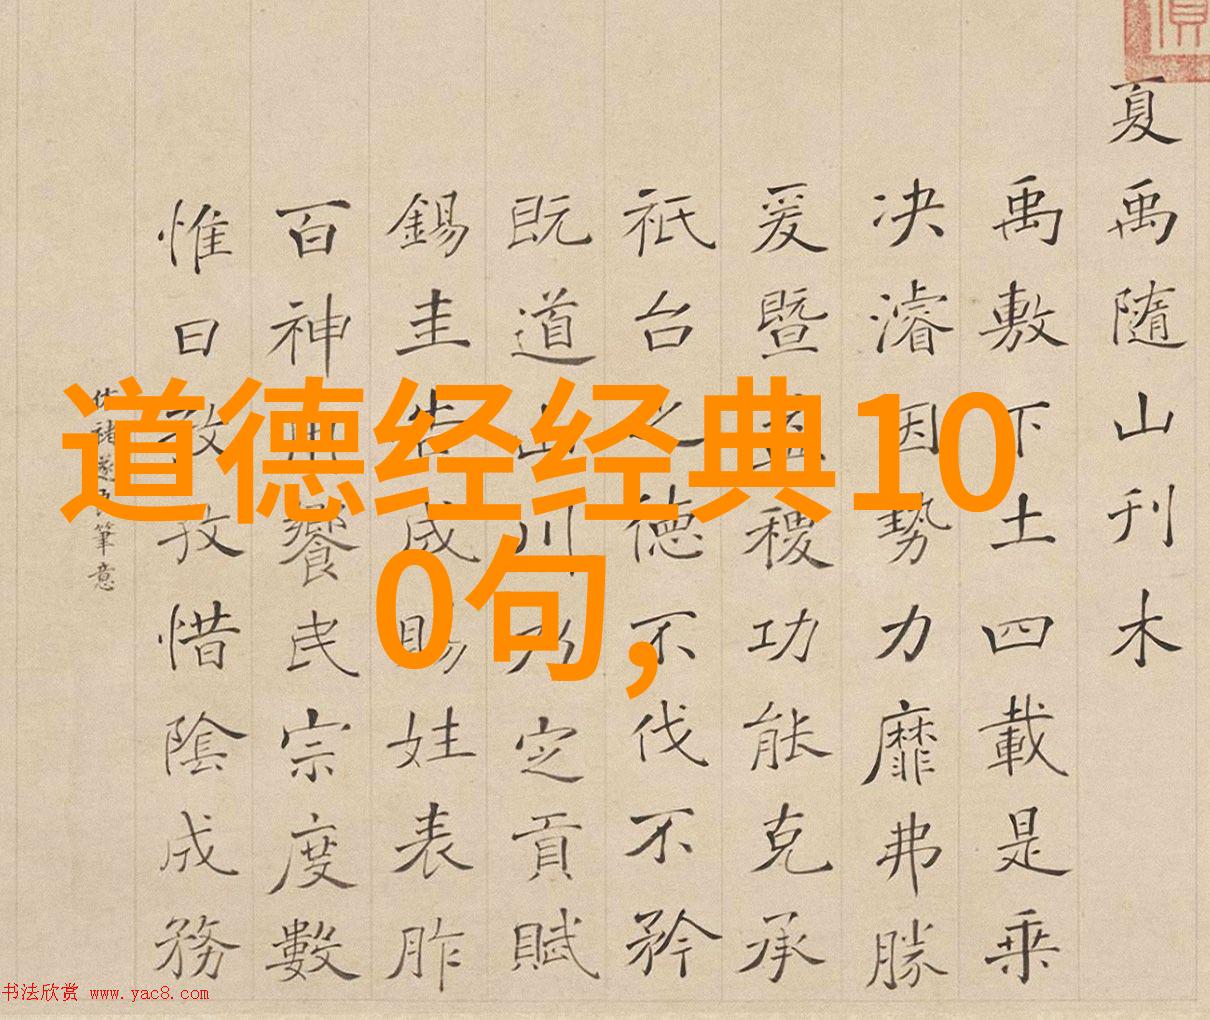 道德经经典10
0句,
夏禹隨山刊木
禹敷下土四載是乗
决濬因勢力靡弗勝
爰暨稷功能克承
祇台之德不伐不矜
既道山川乃定貢賦
錫圭告成賜姓表胙
百神用饗民宗度數
惟日孜孜惜陰成務
褚遂良筆意
书法欣赏 www.yac8.com